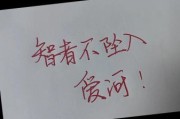 智者不坠入
爱河！